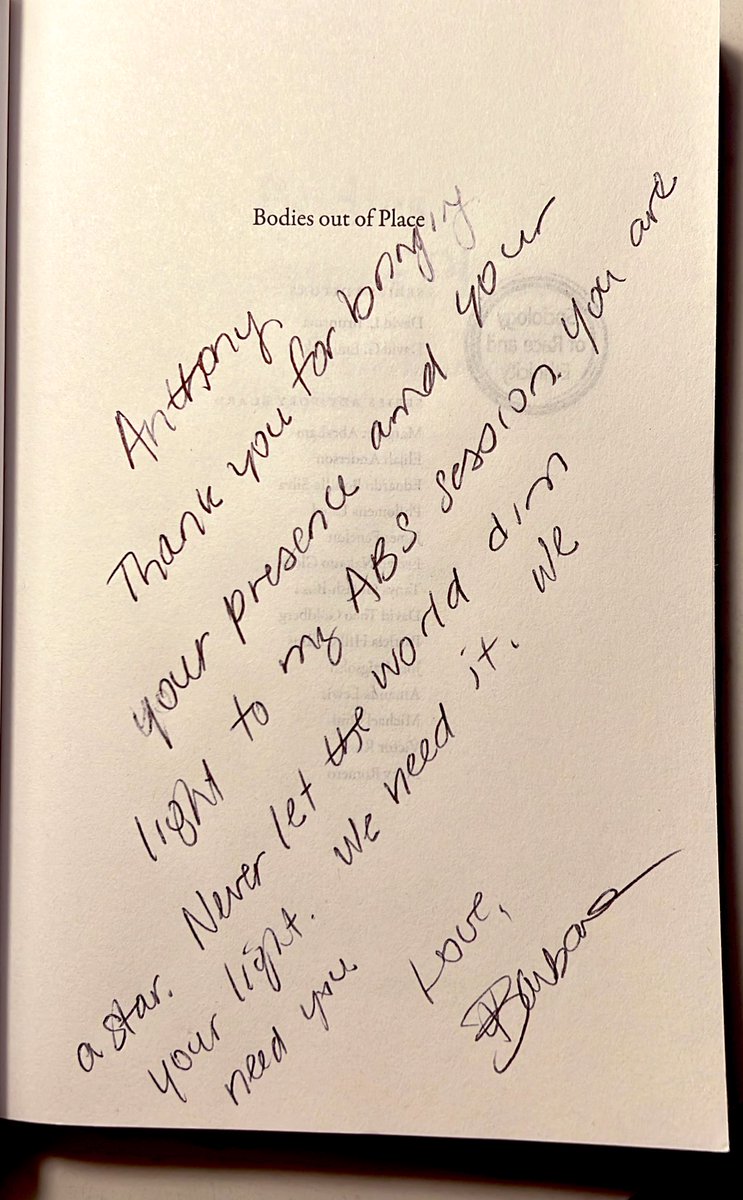 Bodies out of Place
Anthony,
Thank you for bringing
your presence and your
light to my ABS session. You are
a star. Never let the world dim
your light. We need it. We
need you
Love,
Barbara